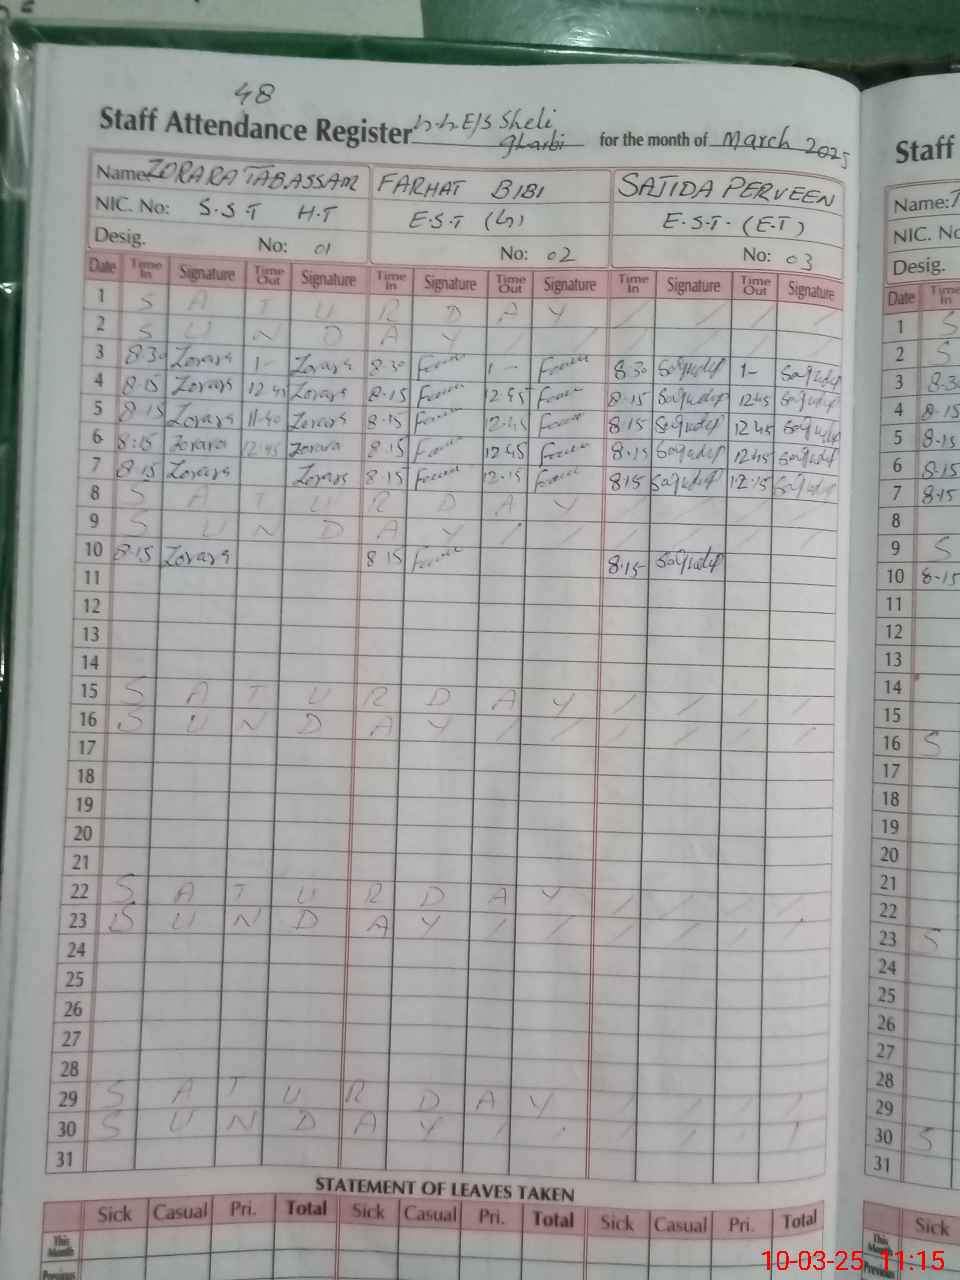 48
Staff Attendance Register G.G.E/S Sheli Gharbi for the month of March 2025
Name: ZORARA TABASSAM FARHAT BIBI SAJIDA PERVEEN
NIC. No: S.S.T H.T E.S.T (G) E.S.T. (E.T)
Desig. No: 01 No: 02 No: 03
Date Time In Signature Time Out Signature Time In Signature Time Out Signature Time In Signature Time Out Signature
1 S A T U R D A Y
2 S U N D A Y
3 8.30 Zorara 1- Zorara 8.30 1- 8.30 1-
4 8.15 Zorara 12.45 Zorara 8.15 12.45 8.15 12.45
5 8.15 Zorara 11.40 Zorara 8.15 12.45 8.15 12.45
6 8.15 Zorara 12.45 Zorara 8.15 12.45 8.15 12.45
7 8.15 Zorara Zorara 8.15 12.15 8.15 12.15
8 S A T U R D A Y
9 S U N D A Y
10 8.15 Zorara 8.15 8.15
11
12
13
14
15 S A T U R D A Y
16 S U N D A Y
17
18
19
20
21
22 S A T U R D A Y
23 S U N D A Y
24
25
26
27
28
29 S A T U R D A Y
30 S U N D A Y
31
STATEMENT OF LEAVES TAKEN
Sick Casual Pri. Total Sick Casual Pri. Total Sick Casual Pri. Total
This Month
Previous
Staff
Name:
NIC. No
Desig.
Date Time In
1 S
2 S
3 8.30
4 8.15
5 8.15
6 8.15
7 8.15
8
9 S
10 8.15
11
12
13
14
15
16 S
17
18
19
20
21
22
23 S
24
25
26
27
28
29
30 S
31
Sick
This Month
Previous
10-03-25 11:15